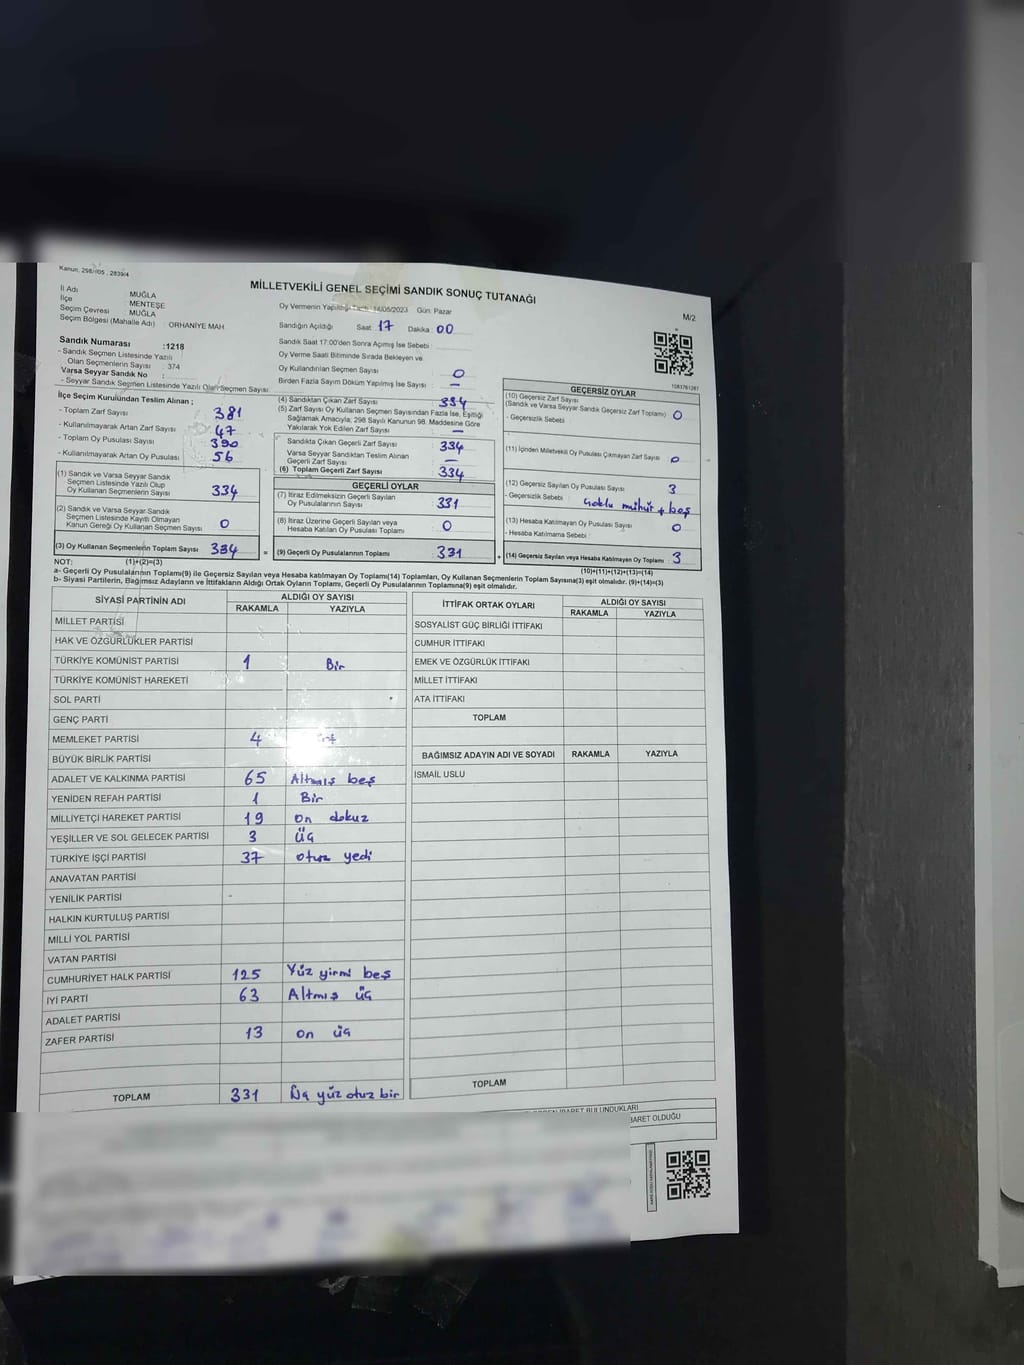 Kanun, 298/105 , 2839/4
MİLLETVEKİLİ GENEL SEÇİMİ SANDIK SONUÇ TUTANAĞI
M/2
İl Adı MUĞLA
İlçe MENTEŞE
Seçim Çevresi MUĞLA
Seçim Bölgesi (Mahalle Adı) : ORHANİYE MAH
Oy Vermenin Yapıldığı Tarih : 14/05/2023 Gün: Pazar
Sandığın Açıldığı Saat : 17 Dakika : 00
Sandık Saat 17:00'den Sonra Açılmış İse Sebebi
Oy Verme Saati Bitiminde Sırada Bekleyen ve
Oy Kullandırılan Seçmen Sayısı : 0
Birden Fazla Sayım Döküm Yapılmış İse Sayısı : —
Sandık Numarası :1218
- Sandık Seçmen Listesinde Yazılı
Olan Seçmenlerin Sayısı : 374
Varsa Seyyar Sandık No :
- Seyyar Sandık Seçmen Listesinde Yazılı Olan Seçmen Sayısı:
İlçe Seçim Kurulundan Teslim Alınan ;
- Toplam Zarf Sayısı : 381
- Kullanılmayarak Artan Zarf Sayısı : 47
- Toplam Oy Pusulası Sayısı : 390
- Kullanılmayarak Artan Oy Pusulası : 56
(1) Sandık ve Varsa Seyyar Sandık
Seçmen Listesinde Yazılı Olup
Oy Kullanan Seçmenlerin Sayısı : 334
(2) Sandık ve Varsa Seyyar Sandık
Seçmen Listesinde Kayıtlı Olmayan
Kanun Gereği Oy Kullanan Seçmen Sayısı : 0
(3) Oy Kullanan Seçmenlerin Toplam Sayısı : 334 =
(1)+(2)=(3)
(4) Sandıktan Çıkan Zarf Sayısı : 334
(5) Zarf Sayısı Oy Kullanan Seçmen Sayısından Fazla İse, Eşitliği
Sağlamak Amacıyla; 298 Sayılı Kanunun 98. Maddesine Göre
Yakılarak Yok Edilen Zarf Sayısı : —
Sandıkta Çıkan Geçerli Zarf Sayısı : 334
Varsa Seyyar Sandıktan Teslim Alınan
Geçerli Zarf Sayısı : —
(6) Toplam Geçerli Zarf Sayısı : 334
GEÇERLİ OYLAR
(7) İtiraz Edilmeksizin Geçerli Sayılan
Oy Pusulalarının Sayısı : 331
(8) İtiraz Üzerine Geçerli Sayılan veya
Hesaba Katılan Oy Pusulası Toplamı : 0
(9) Geçerli Oy Pusulalarının Toplamı : 331 +
1083761287
GEÇERSİZ OYLAR
(10) Geçersiz Zarf Sayısı
(Sandık ve Varsa Seyyar Sandık Geçersiz Zarf Toplamı) : 0
- Geçersizlik Sebebi :
(11) İçinden Milletvekili Oy Pusulası Çıkmayan Zarf Sayısı : 0
(12) Geçersiz Sayılan Oy Pusulası Sayısı : 3
- Geçersizlik Sebebi : Çoklu mühür + beş
(13) Hesaba Katılmayan Oy Pusulası Sayısı : 0
- Hesaba Katılmama Sebebi :
(14) Geçersiz Sayılan veya Hesaba Katılmayan Oy Toplamı : 3
(10)+(11)+(12)+(13)=(14)
NOT:
a- Geçerli Oy Pusulalarının Toplamı(9) ile Geçersiz Sayılan veya Hesaba katılmayan Oy Toplamı(14) Toplamları, Oy Kullanan Seçmenlerin Toplam Sayısına(3) eşit olmalıdır. (9)+(14)=(3)
b- Siyasi Partilerin, Bağımsız Adayların ve İttifakların Aldığı Ortak Oyların Toplamı, Geçerli Oy Pusulalarının Toplamına(9) eşit olmalıdır.
SİYASİ PARTİNİN ADI ALDIĞI OY SAYISI
RAKAMLA YAZIYLA
MİLLET PARTİSİ
HAK VE ÖZGÜRLÜKLER PARTİSİ
TÜRKİYE KOMÜNİST PARTİSİ 1 Bir
TÜRKİYE KOMÜNİST HAREKETİ
SOL PARTİ
GENÇ PARTİ
MEMLEKET PARTİSİ 4
BÜYÜK BİRLİK PARTİSİ
ADALET VE KALKINMA PARTİSİ 65 Altmış beş
YENİDEN REFAH PARTİSİ 1 Bir
MİLLİYETÇİ HAREKET PARTİSİ 19 On dokuz
YEŞİLLER VE SOL GELECEK PARTİSİ 3 üç
TÜRKİYE İŞÇİ PARTİSİ 37 otuz yedi
ANAVATAN PARTİSİ
YENİLİK PARTİSİ
HALKIN KURTULUŞ PARTİSİ
MİLLİ YOL PARTİSİ
VATAN PARTİSİ
CUMHURİYET HALK PARTİSİ 125 Yüz yirmi beş
İYİ PARTİ 63 Altmış üç
ADALET PARTİSİ
ZAFER PARTİSİ 13 on üç
TOPLAM 331 Üç yüz otuz bir
İTTİFAK ORTAK OYLARI ALDIĞI OY SAYISI
RAKAMLA YAZIYLA
SOSYALİST GÜÇ BİRLİĞİ İTTİFAKI
CUMHUR İTTİFAKI
EMEK VE ÖZGÜRLÜK İTTİFAKI
MİLLET İTTİFAKI
ATA İTTİFAKI
TOPLAM
BAĞIMSIZ ADAYIN ADI VE SOYADI RAKAMLA YAZIYLA
İSMAİL USLU
TOPLAM
BULUNDUKLARI
BARET OLDUĞU